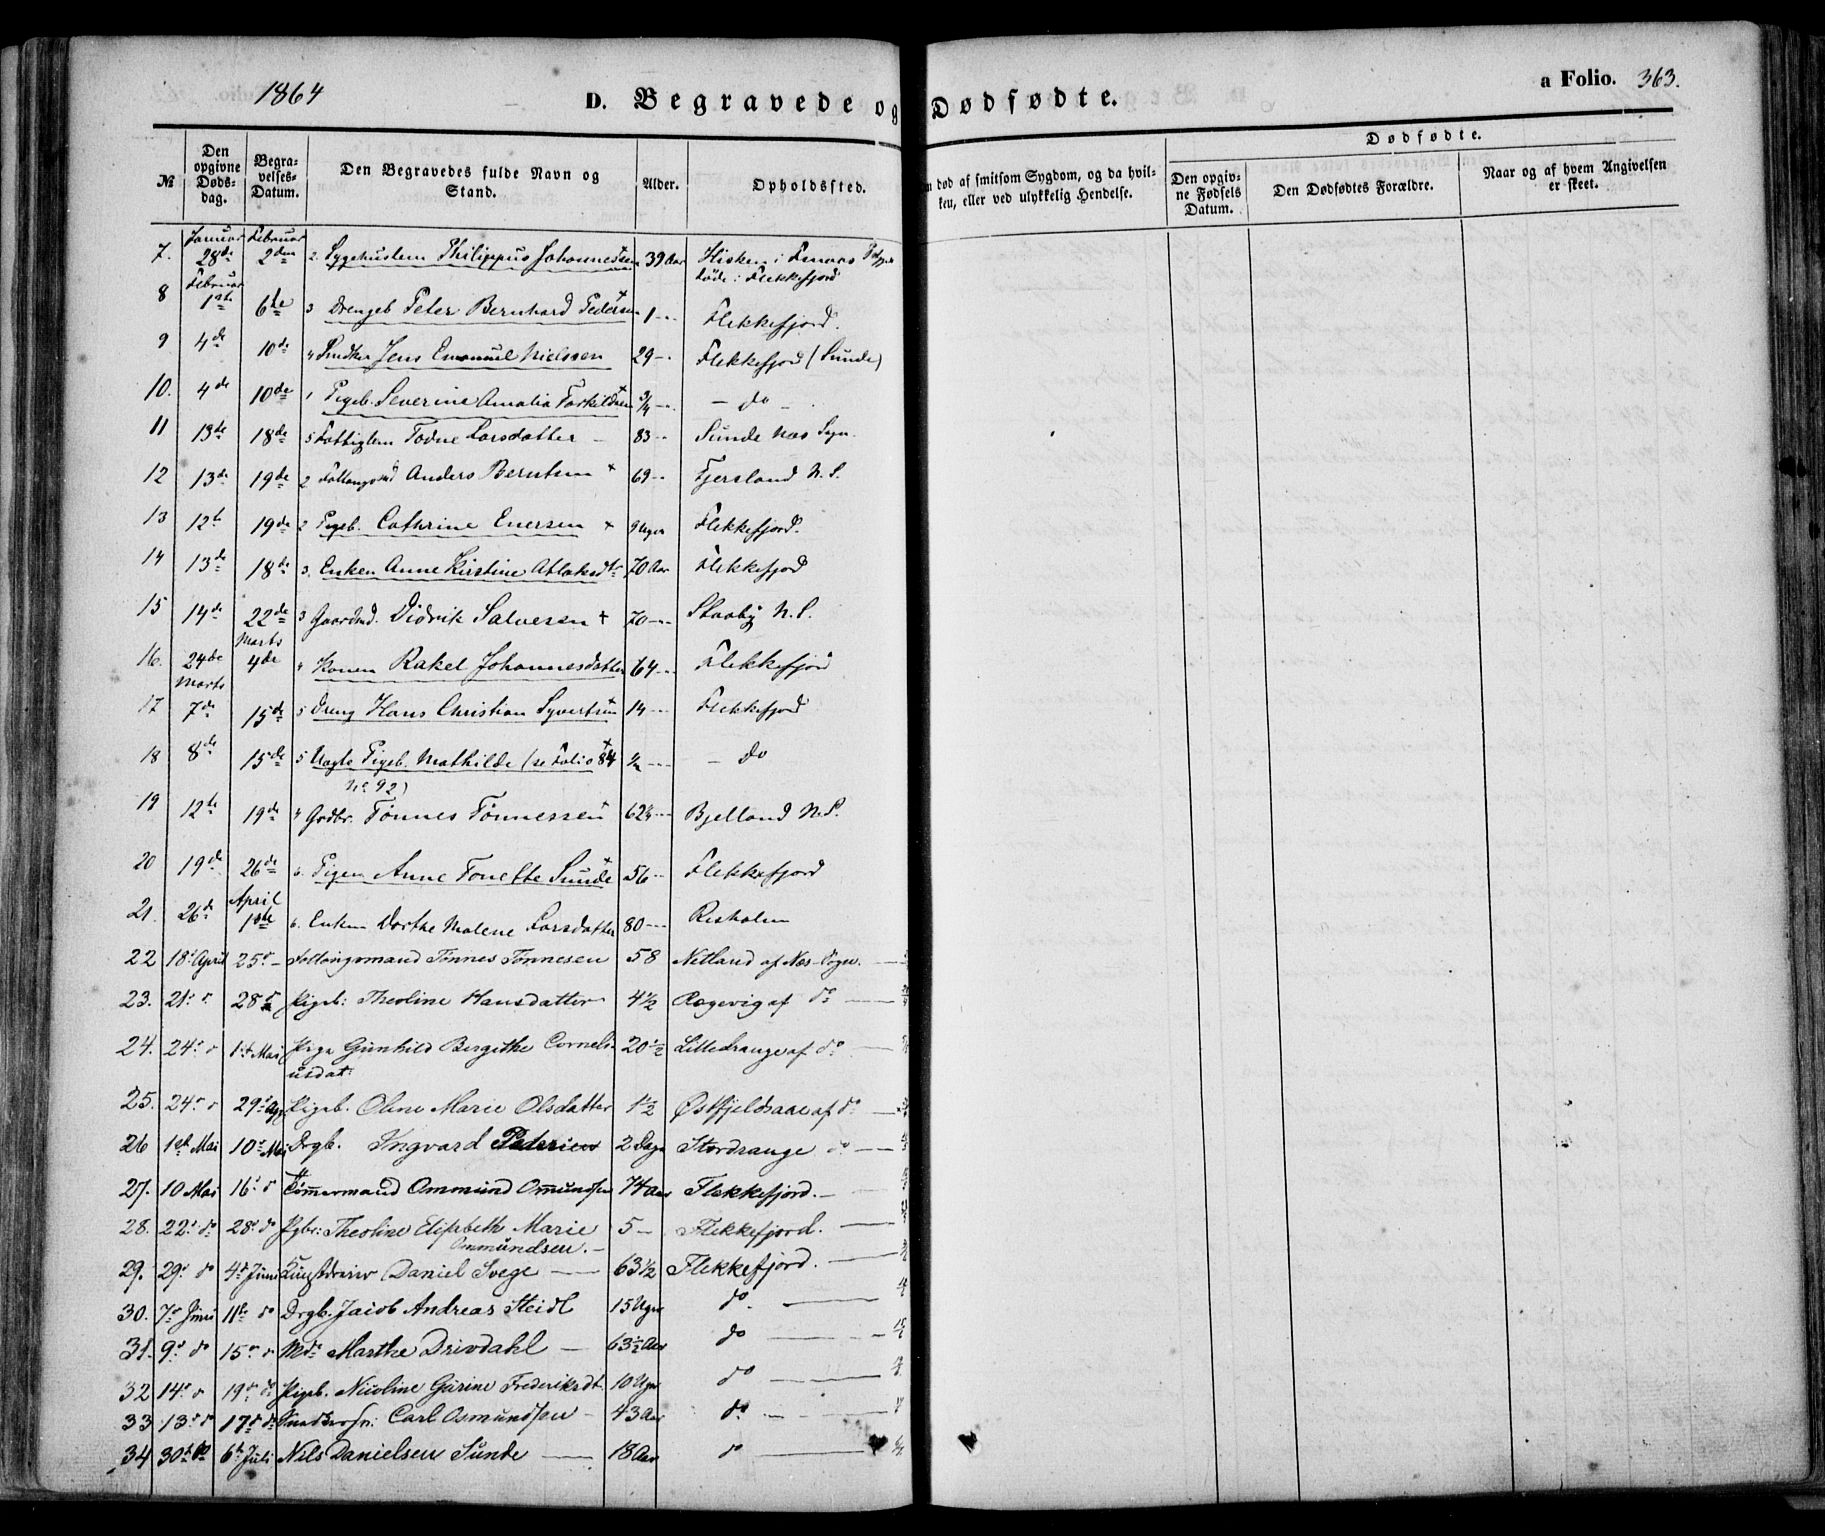 1864 D. Begravede og Dødfødte. a Folio. 363.
Dødfødte.
№ Den opgivne Dødsdag. Begravelses-Datum. Den Begravedes fulde Navn og Stand. Alder. Opholdssted. død af smitsom Sygdom, og da hvilken, eller ved ulykkelig Hendelse. Den opgivne Fødsels Datum. Den Dødfødtes Forældre. Naar og af hvem Angivelsen er skeet.
Januar Februar
7. 28de 2den 2. Sygehuslem Philippus Johannessen 39 Aar Hisken i Fenaas
Februar døde i Flekkefjord
8 1ste 6te 3 Drengeb. Peter Bernhard Pedersen + 1 -- Flekkefjord.
9 4de 10de " Snedker Jens Emanuel Nielsen 29 - Flekkefjord (Sunde)
10. 4de 10de 1 Pigeb. Severine Amalia Torkildsen + 3/4 -- - do -
11 13de 18de 5 Fattiglem Todne Larsdatter - 83 -- Sunde Næs Sogn.
12 13de 19de 2 Føllaugsmd Anders Berntsen + 69 -- Fjersland N. S.
13 12te 19de 2 Pigeb. Cathrine Enersen + 9 Uger Flekkefjord.
14 13de 18de 3. Enken Anne Kirstine Atlaksdtr 70 Aar Flekkefjord
15 14de 22de 3 Gaardmd. Didrik Salvesen + 70 --- Staaby N. S.
Marts
16. 24de 4de " Konen Rakel Johannesdatter 64 -- Flekkefjord
Marts
17 7de 15de 5 Dreng Hans Christian Syvertsen + 14 --- Flekkefjord
18 8de 15de 5 Uægte Pigeb. Mathilde (se Folio 84 + 1/2 --- - do
No 92)
19 12te 19de " Grdbr. Tønnes Tønnessen + 62 1/2 --- Bjelland N. S.
20 19de 26de 6. Pigen Anne Tonette Sunde + 56 -- Flekkefjord
April
21. 26de 1ste 6. Enken Dorthe Malene Larsdatter 80 --- Risholm
22 18. April 25. - Føllaugsmand Tønnes Tønnesen 58 Netland af Næs-Sogn. -
23. 21. " 28 " Pigeb: Theoline Hansdatter 4 1/2 Ragevig af do -
24. 24. " 1st Mai Pige Gunhild Bergithe Corneli- 20 1/2 Litledrange af do -
usdat:
25. 24. " 29. Apr Pigeb. Oline Marie Olsdatter 1 1/2 Østfjeldsaae af do -
26 1ste Mai 10. Mai Drgb. Ingvard Pedersen 2 Dage Stordrange do -
27. 10 Mai 16. do Tømmermand Ommund Omundsen 74 Aar Flekkefjord. -
28. 22. do 28. do Pgbr: Theoline Elisabeth Marie 5 - Flekkefjord. -
Ommundsen. -
29. 29. do 4. Juni Daniel Svege - 63 1/2 Flekkefjord. -
30. 7. Juni 11te do Drgb. Jacob Andreas Steidl 15 Uger do. -
31. 9. do 15. do Md. Marthe Drivdahl - 63 1/2 Aar do -
32 14. do 19. do Pigeb. Nicoline Gurine Frederiksdt. 10 Uger do -
33 13. do 17. do Carl Osmundsen - 43 Aar do -
34 30te do 6te Juli Nils Danielsen Sunde - 18 Aar do -